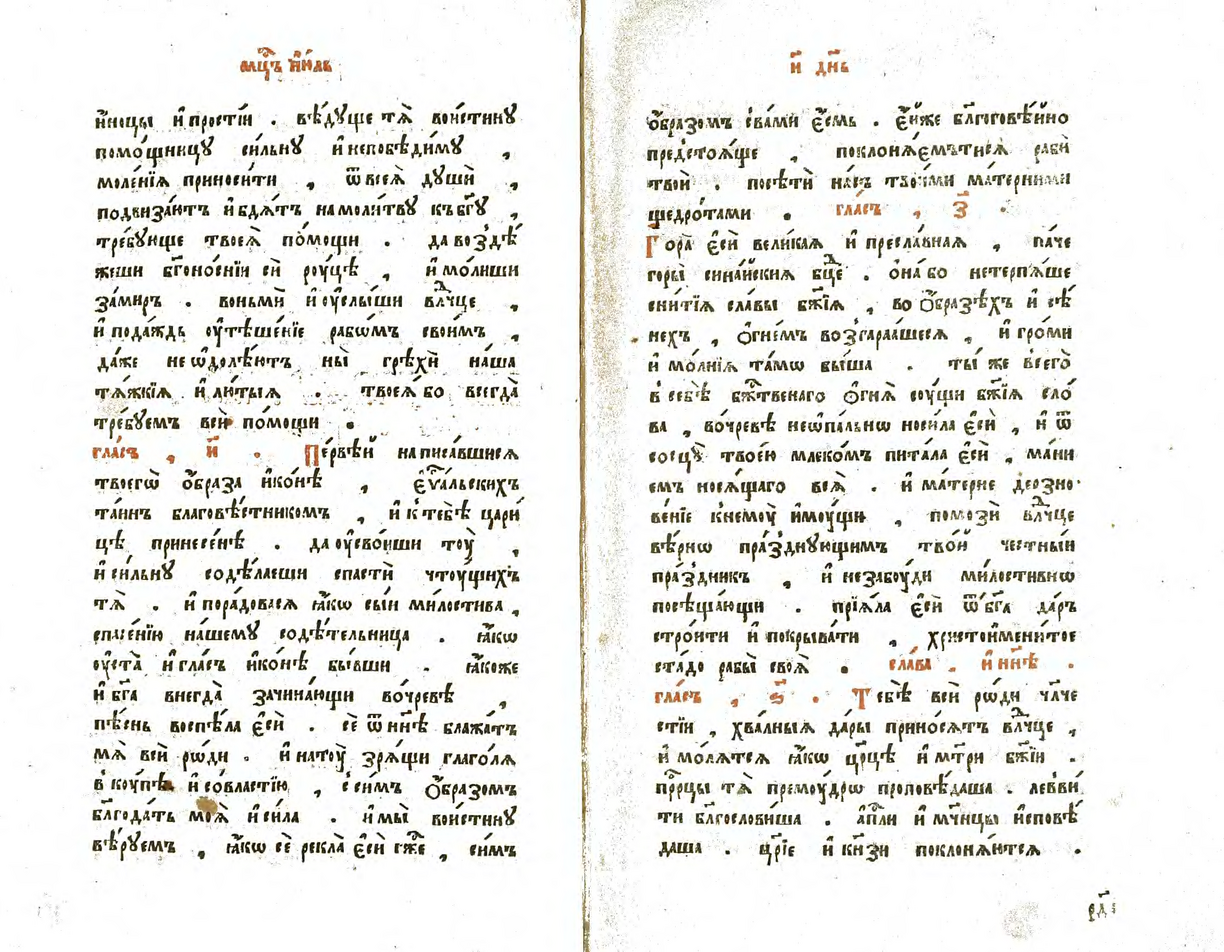 мцⷭ҇ъ і҆ю́ль
и҆́ноцы и҆ прості́и . вѣ́дꙋще тѧ̀ вои́стинꙋ
помо́щницꙋ си́льнꙋ и҆ непобѣди́мꙋ ,
моле́нїѧ приноси́ти , ѿ всеѧ̀ дꙋшѝ ,
подвиза́ютъ и҆ бдѧ́тъ на моли́твꙋ къ бг҃ꙋ ,
тре́бꙋюще твоеѧ̀ по́мощи . да воздѣ́
жеши бг҃оно́снїи сѝ рꙋ́цѣ , и҆ мо́лиши
за ми́ръ . воньмѝ и҆ ᲂу҆слы́ши влⷣчце ,
и҆ пода́ждь ᲂу҆тѣше́нїе рабѡ́мъ свои́мъ ,
да́же не ѡ҆долѣ́ютъ ны̀ грѣхѝ на́ша
тѧ́жкїѧ и҆ лю́тыѧ . твоеѧ́ бо всегда̀
тре́бꙋемъ всѝ по́мощи .
гла́съ , и҃ . Пе́рвѣй написа́вшисѧ
твоегѡ̀ ѻ҆́браза и҆ко́нѣ , є҆ѵⷢ҇альскихъ
та́инъ благовѣ́стникомъ , и҆ к тебѣ̀ цари́
цѣ принесе́нѣ . да ᲂу҆сво́иши тᲂу̀ ,
и҆ си́льнꙋ содѣ́лаеши спастѝ чтꙋ́щихъ
тѧ̀ . и҆ пора́довасѧ ꙗ҆́кѡ сы́и ми́лостива ,
спасе́нїю на́шемꙋ содѣ́тельница . ꙗ҆́кѡ
ᲂу҆ста̀ и҆ гла́съ и҆ко́нѣ бы́вши . ꙗ҆́коже
и҆ бг҃а внегда̀ зачина́ющи во чре́вѣ ,
пѣ́снь воспѣ́ла є҆сѝ . сѐ ѿ нн҃ѣ блажа́тъ
мѧ̀ всѝ рѡ́ди . и҆ на тᲂу̀ зрѧ́щи глаго́лѧ
в кꙋ́пѣ и҆ со вла́стїю , с си́мъ ѻ҆́бразомъ
блгⷣода́ть моѧ̀ и҆ си́ла . и҆ мы̀ вои́стинꙋ
вѣ́рꙋемъ , ꙗ҆́кѡ сѐ рекла̀ є҆сѝ гжⷭ҇е , си́мъ
и҃ дн҃ь
ѻ҆́бразомъ с ва́ми є҆́смь . є҆́йже бл҃гоговѣ́йно
предстоѧ́ще , поклонѧ́емътисѧ рабѝ
твоѝ . посѣтѝ на́съ твои́ми ма́терними
щедро́тами . гла́съ , з҃ .
Гора̀ є҆сѝ вели́каѧ и҆ пресла́внаѧ , па́че
горы̀ сина́йскиѧ бцⷣе . ѻ҆на́ бо не терпѧ́ше
сни́тїѧ сла́вы бж҃їѧ , во ѻ҆́бразѣхъ и҆ сѣ́
нехъ , ѻ҆гне́мъ возгара́ашесѧ , и҆ гро́ми
и҆ мо́лнїѧ та́мѡ бы́ша . ты́ же всего̀
в себѣ̀ бжⷭ҇твенаго ѻ҆гнѧ̀ сꙋ́щи бж҃їѧ сло́
ва , во чре́вѣ неѡпа́льнѡ носи́ла є҆сѝ , и҆ ѿ
сосцꙋ̀ твое́ю млеко́мъ пита́ла є҆сѝ , ма́ни
емъ носѧ́щаго всѧ̀ . и҆ ма́терне дерзно
ве́нїе к немꙋ̀ и҆мꙋ́щи , помозѝ влⷣчце
вѣ́рнѡ пра́зднꙋющимъ тво́й че́стныи
пра́здникъ , и҆ не забꙋ́ди ми́лостивнѡ
посѣща́ющи . прїѧ́ла є҆сѝ ѿ бг҃а да́ръ
стро́ити и҆ покрыва́ти , христоимени́тое
ста́до рабы̀ своѧ̀ . сла́ва . и҆ нн҃ѣ .
гла́съ , ѕ҃ . Тебѣ̀ всѝ рѡ́ди чл҃че
стїи , хва́лныѧ да́ры прино́сѧтъ влⷣчце ,
и҆ мо́лѧтсѧ ꙗ҆́кѡ цр҃цѣ и҆ мт҃ри бж҃їи .
прⷪ҇рцы тѧ̀ премꙋ́дрѡ проповѣ́даша . левви
ти бл҃гослови́ша . а҆пⷭ҇ли и҆ мч҃нцы и҆сповѣ́
даша . цр҃їе и҆ кн҃зи поклонѧ́ютсѧ .
рд҃